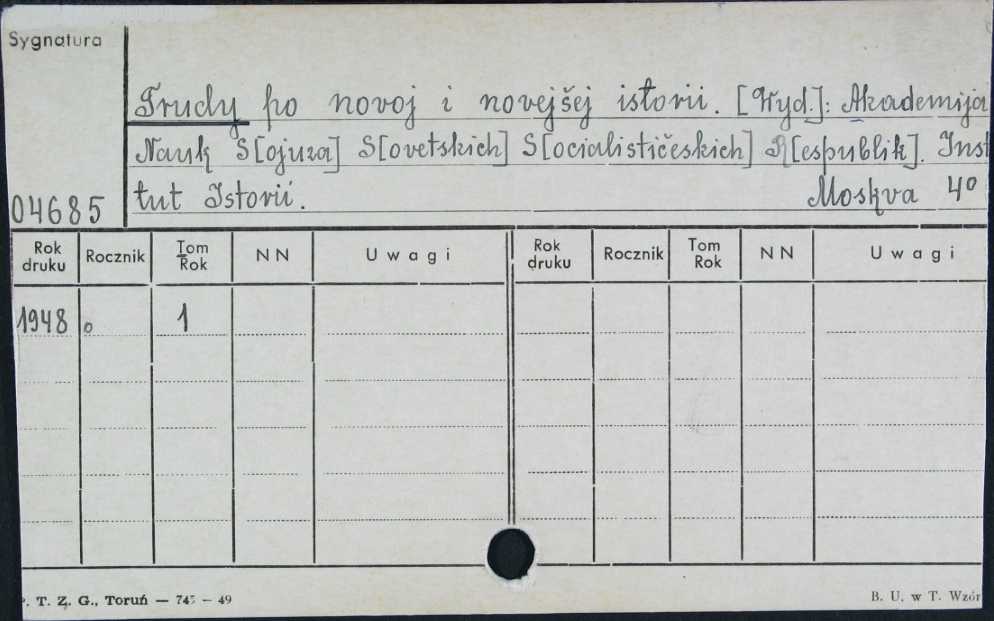 Sygnatura
Trudy po novoj i novejšej istorii. [Wyd.]: Akademija
Nauk S[ojuza] S[ovetskich] S[ocialističeskich] R[espublik]. Inst
04685 tut Istorii. Moskva 4º
Rok druku Rocznik Tom Rok NN Uwagi Rok druku Rocznik Tom Rok NN Uwagi
1948 o 1
. T. Z. G., Toruń — 745 — 49 B. U. w T. Wzór